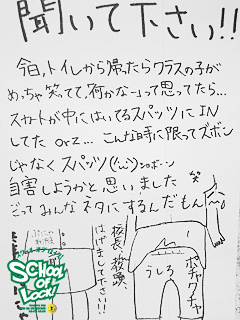 聞いて下さい!!
今日、トイレから帰ったらクラスの子が
めっちゃ笑ってて、何かなーって思ってたら…
スカートが中にはいてるスパッツにIN
してた orz… こんな時に限ってズボン
じゃなくスパッツ(´;ω;`)ショボーン
自害しようかと思いました 笑
だって みんなネタにするんだもん
校長、教頭、
はげまして下さい!!
うしろ
ポチャクチャ
スクール・オブ・ロック!
SCHOOL OF LOCK!